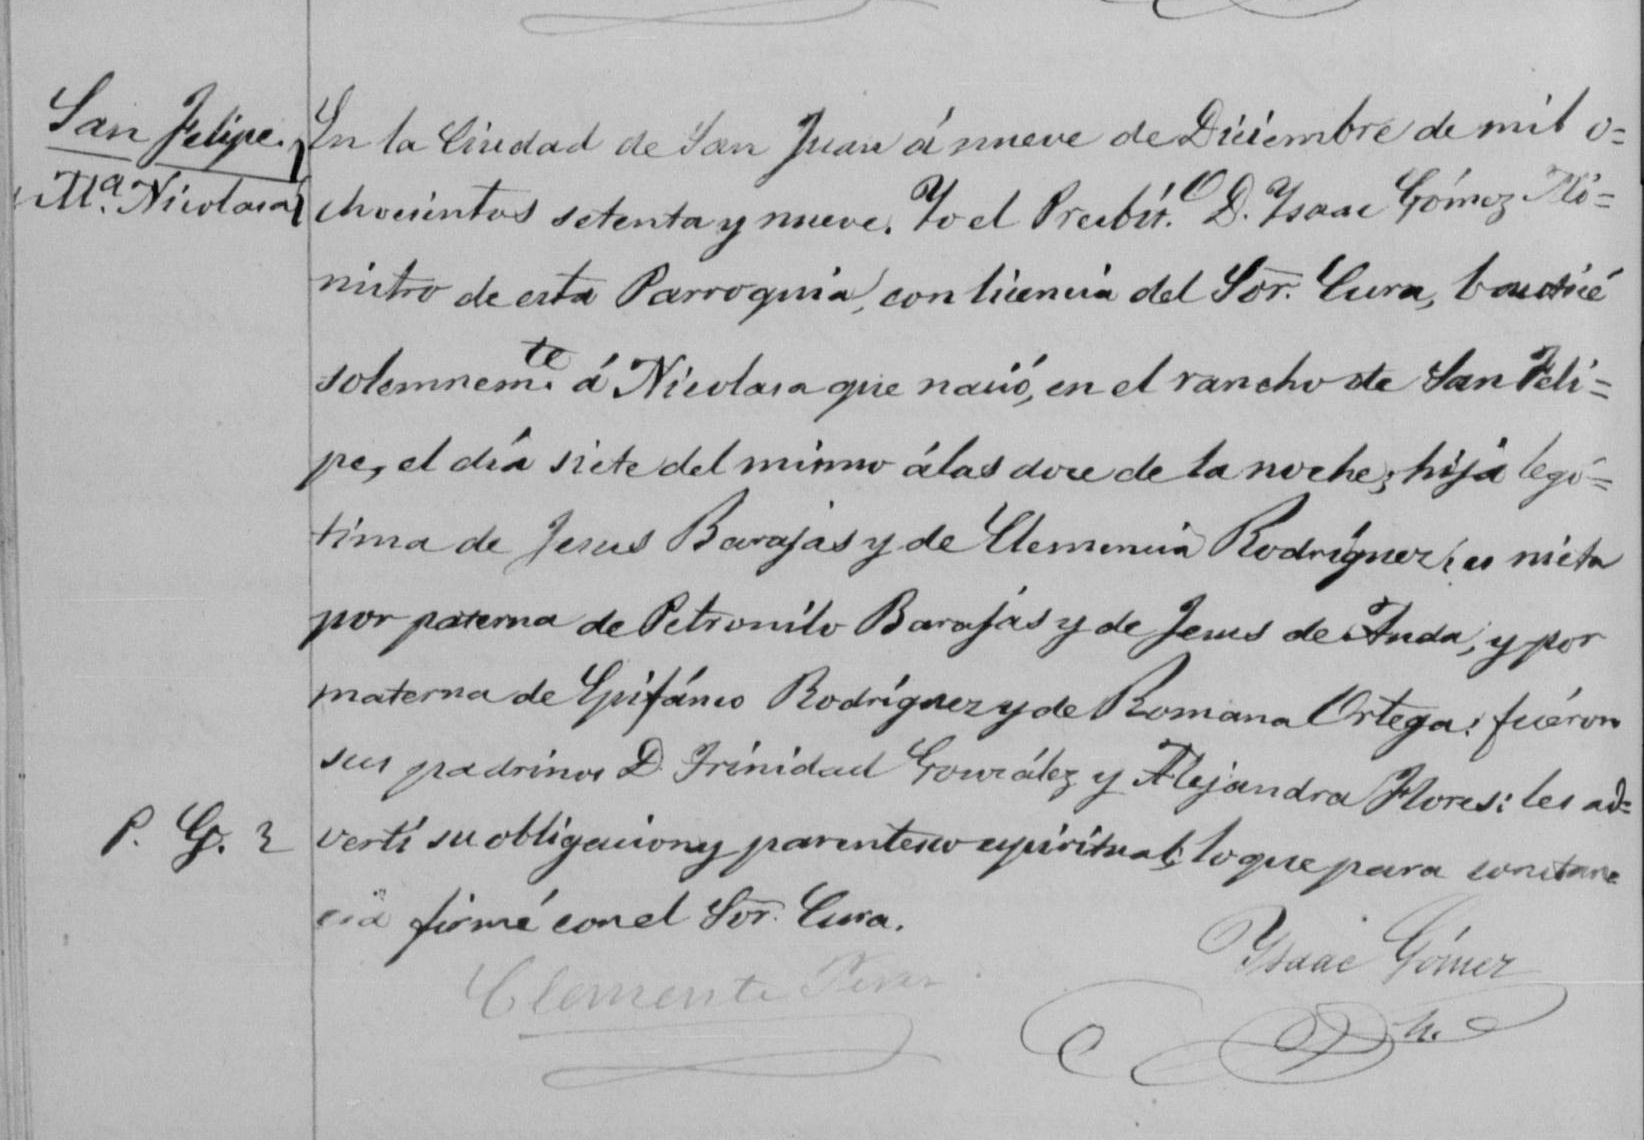 San Felipe.
Mª. Nicolasa
En la Ciudad de San Juan á nueve de Diciembre de mil o=
chocientos setenta y nueve. Yo el Presbít.º D. Ysaac Gómez Mi=
nistro de esta Parroquia, con licencia del Sor. Cura, bauticé
solemnem.te á Nicolasa que nació, en el rancho de San Feli=
pe, el día siete del mismo á las doce de la noche; hija legí=
tima de Jesus Barajas y de Clemencia Rodríguez; es nieta
por paterna de Petronilo Barajas y de Jesus de Anda, y por
materna de Epifánio Rodríguez y de Romana Ortega: fuéron
sus padrinos D. Trinidad González y Alejandra Flores: les ad=
P. G. 2
vertí su obligacion y parentesco espiritual; lo que para constan
cia firmé con el Sor. Cura.
Ysaac Gómez
Clemente